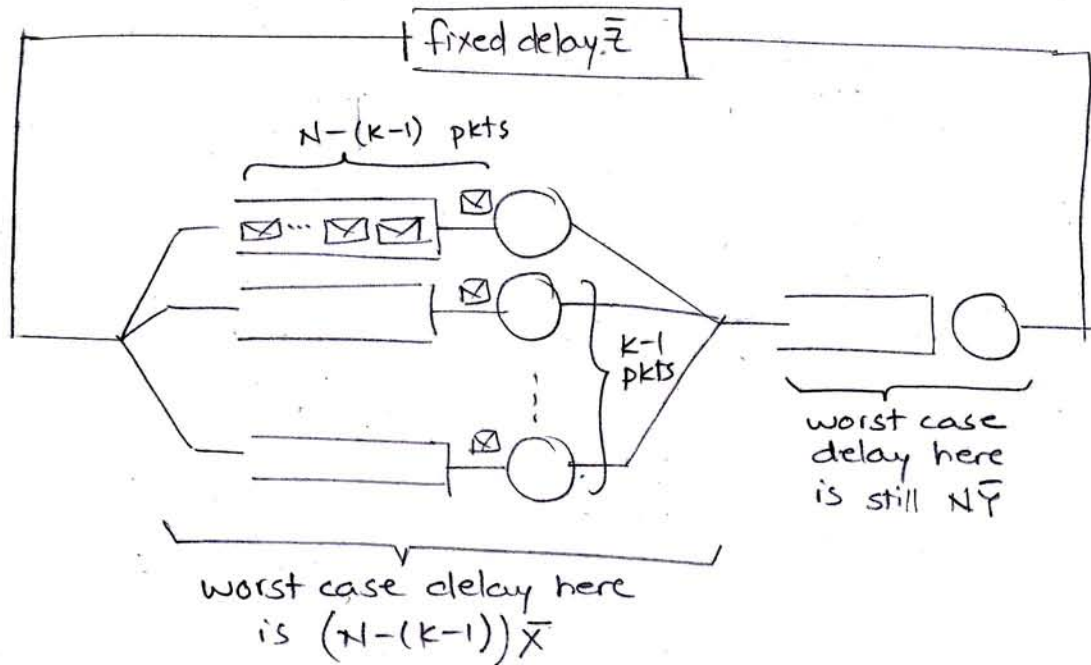 fixed delay. Z̄
N-(K-1) pkts
...
K-1
pkts
worst case
delay here
is still NȲ
worst case delay here
is (N-(K-1)) X̄